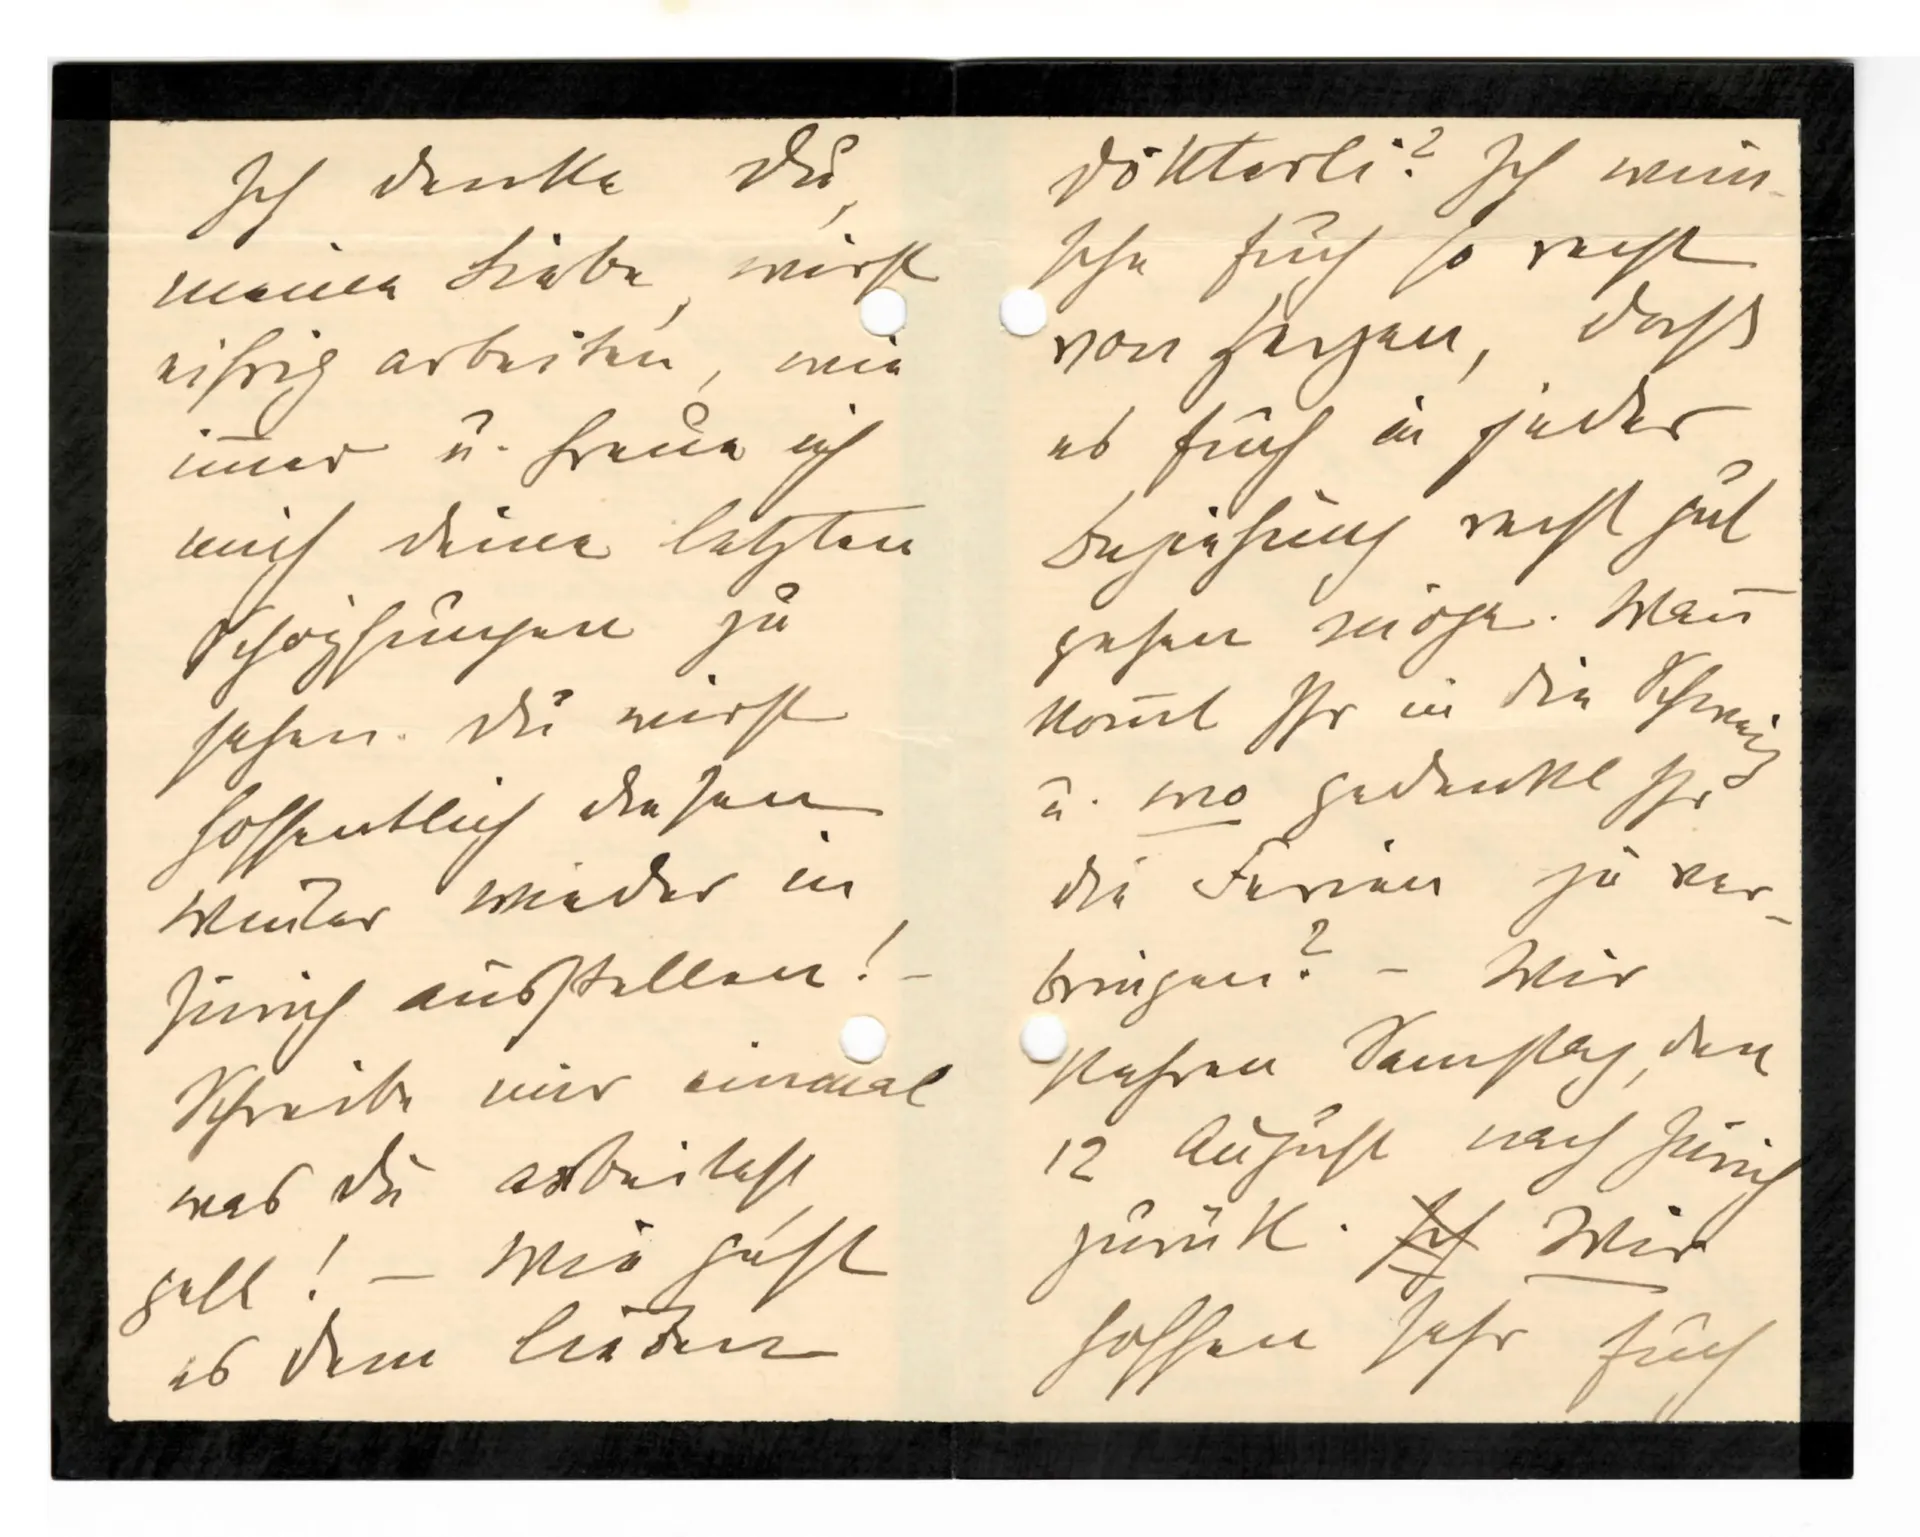 Ich denke Du,
meine Liebe, wirst
eifrig arbeiten, wie
im̅er u. freue ich
mich deine letzten
Schöpfungen zu
sehen. Du wirst
hoffentlich diesen
Winter wieder in
Zürich ausstellen! –
Schreibe mir einmal
was Du arbeitest,
gell! – Wie geht
es dem lieben
Dökterli? Ich wün-
sche Euch so recht
von Herzen, dass
es Euch in jeder
Beziehung recht gut
gehen möge. Wan̅
kom̅t Ihr in die Schweiz
u. wo gedenkt Ihr
die Ferien zu ver-
bringen? – Wir
kehren Samstag, den
12 August nach Zürich
zurück. Ich Wir
hoffen sehr Euch